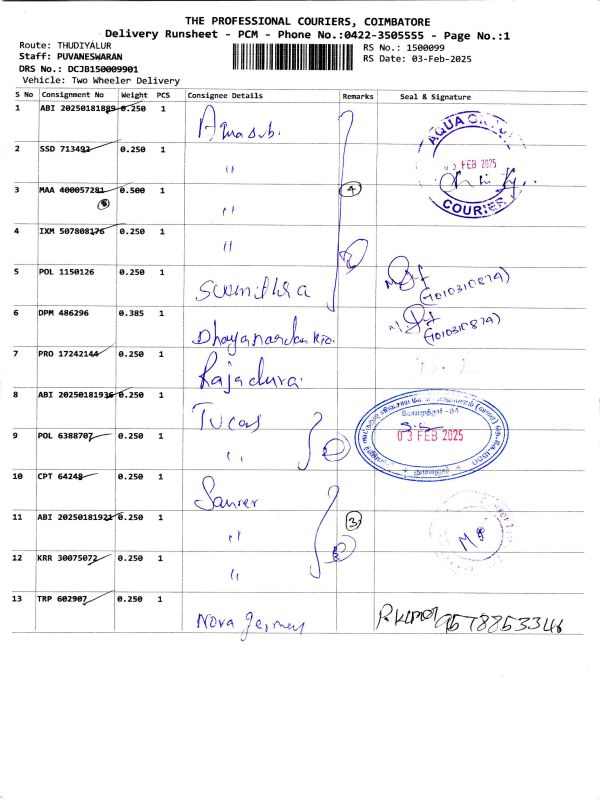 THE PROFESSIONAL COURIERS, COIMBATORE
Delivery Runsheet - PCM - Phone No.:0422-3505555 - Page No.:1
Route: THUDIYALUR
RS No.: 1500099
Staff: PUVANESWARAN
RS Date: 03-Feb-2025
DRS No.: DCJB150009901
Vehicle: Two Wheeler Delivery
S No Consignment No Weight PCS Consignee Details Remarks Seal & Signature
1 ABI 20250181889 0.250 1
2 SSD 713492 0.250 1 "
3 MAA 400057281 0.500 1 " 4
4 IXM 507808176 0.250 1 "
5 POL 1150126 0.250 1 Sumithra
(7010310874)
6 DPM 486296 0.385 1
(7010310874)
7 PRO 17242144 0.250 1 Rajadurai
8 ABI 20250181936 0.250 1 Tucas
9 POL 6388707 0.250 1 " 2
10 CPT 64248 0.250 1
11 ABI 20250181921 0.250 1 " 3
12 KRR 30075072 0.250 1 "
13 TRP 602907 0.250 1 Nova Jermey 9578853346
AQUA
03 FEB 2025
COURIER
03 FEB 2025